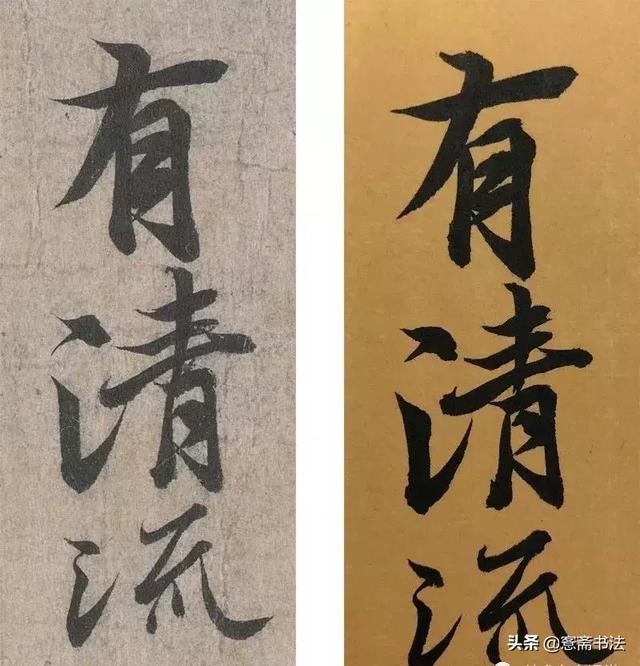 有清流
有清流
头条 @窓斋书法